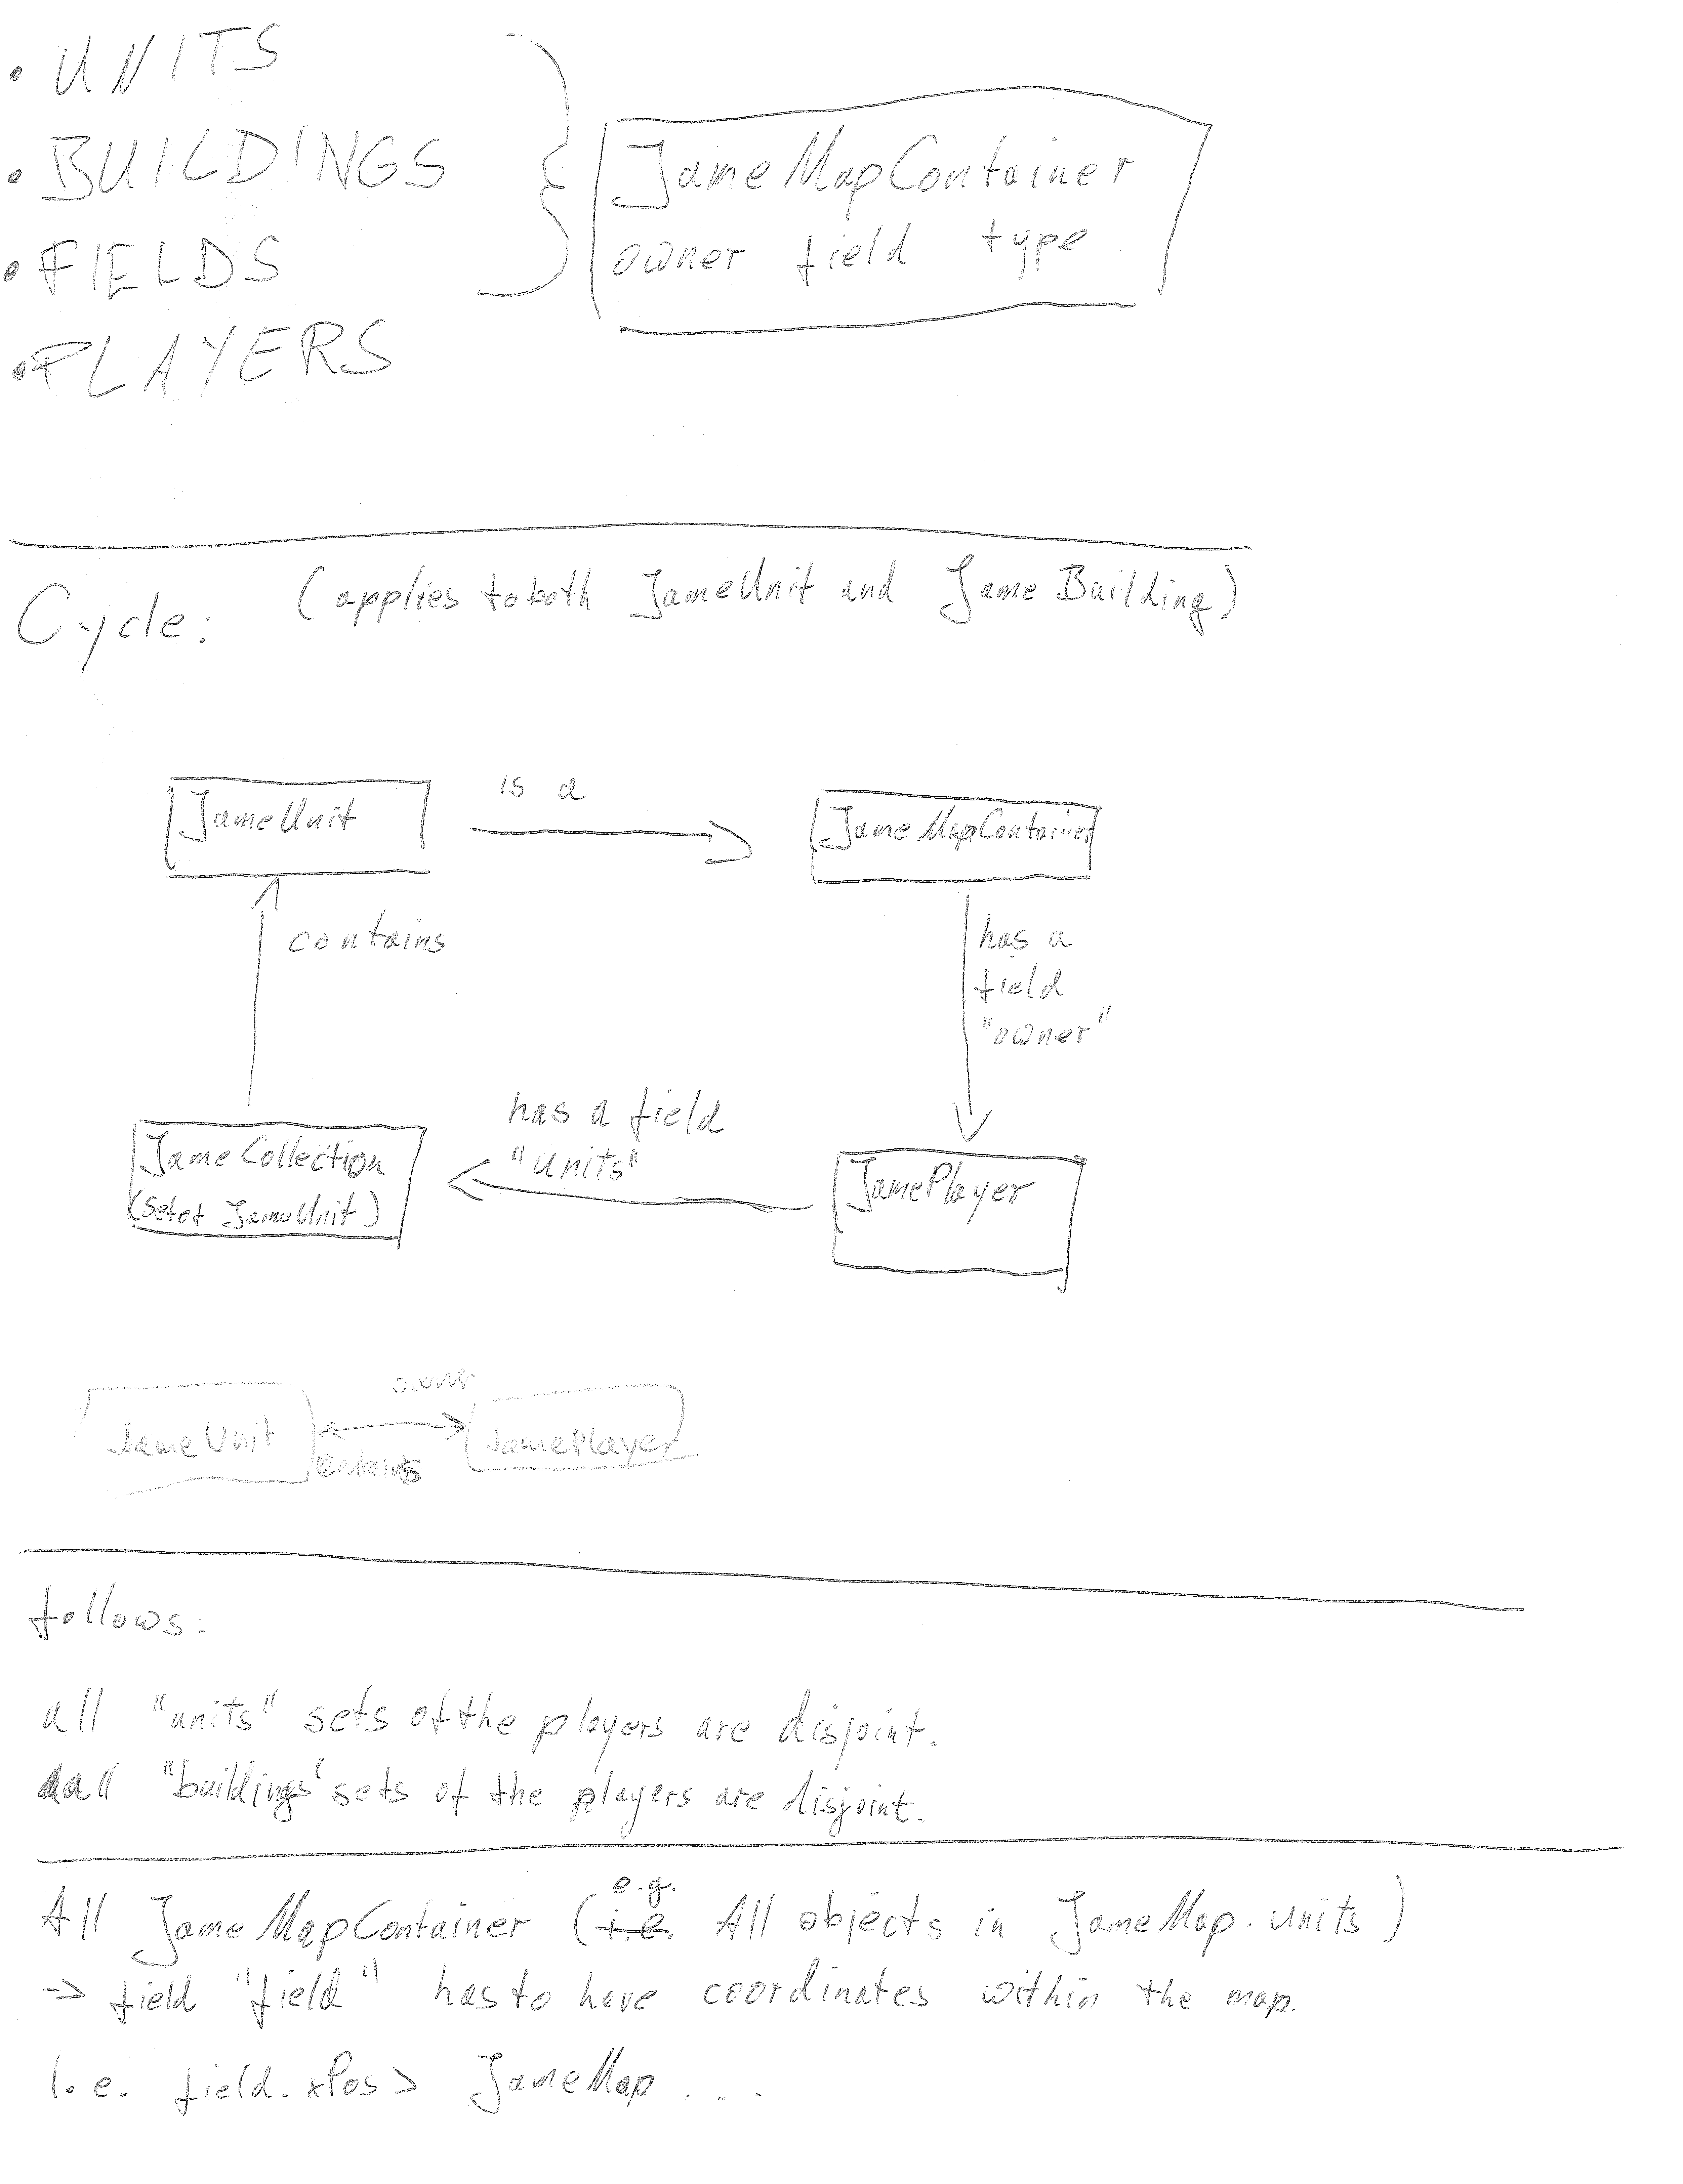 • UNITS
• BUILDINGS
• FIELDS
• PLAYERS
JameMapContainer
owner field type
Cycle: (applies to both JameUnit and JameBuilding)
JameUnit
is a
JameMapContainer
contains
has a
field
"owner"
has a field
"units"
JameCollection
(Set of JameUnit)
JamePlayer
owner
JameUnit
JamePlayer
contains
follows:
all "units" sets of the players are disjoint.
all "buildings" sets of the players are disjoint.
e.g.
All JameMapContainer (i.e. All objects in JameMap.units)
-> field "field" has to have coordinates within the map.
I.e. field.xPos > JameMap ...